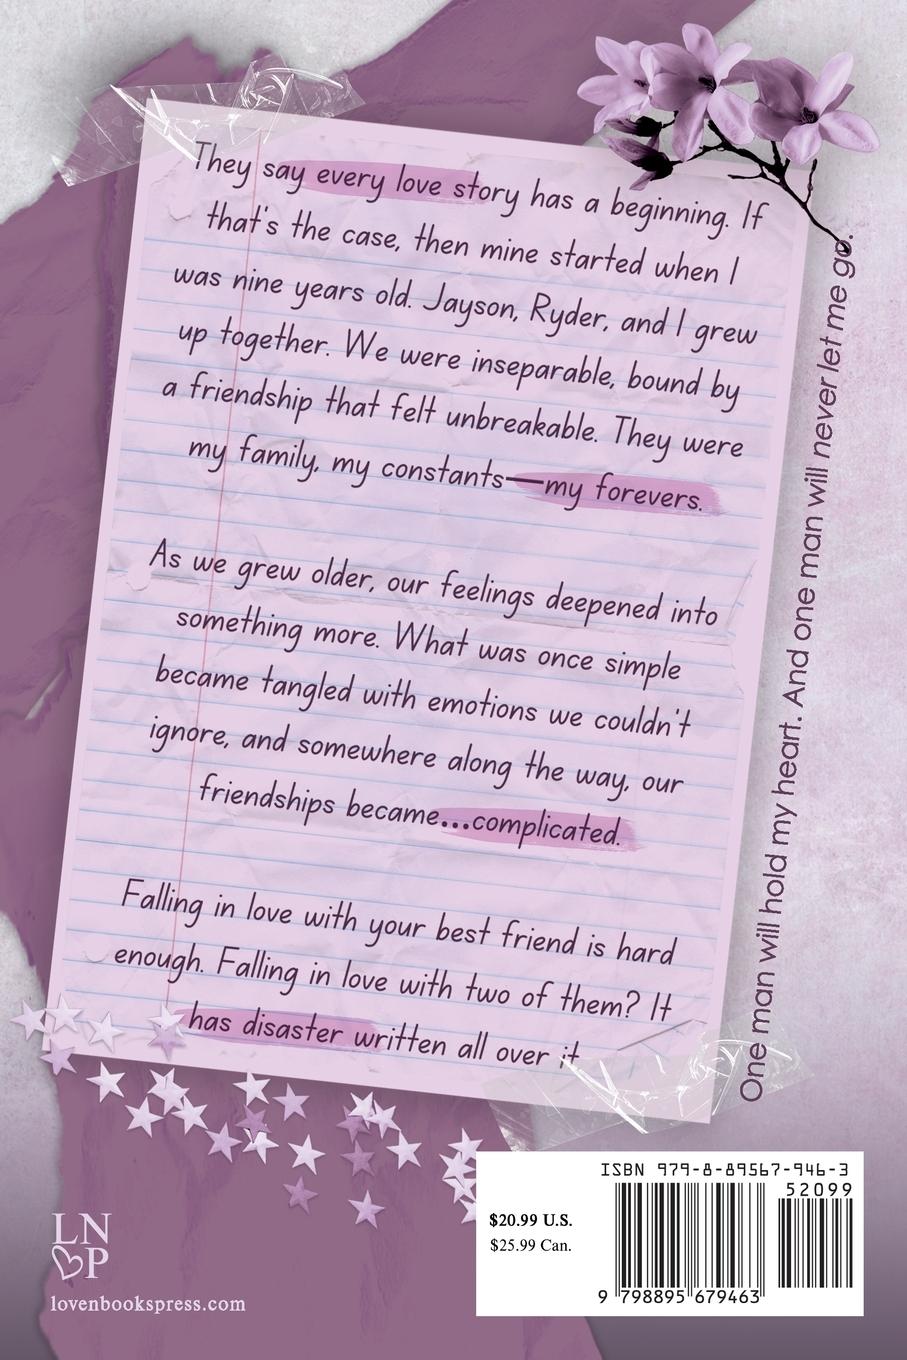 They say every love story has a beginning. If
that's the case, then mine started when I
was nine years old. Jayson, Ryder, and I grew
up together. We were inseparable, bound by
a friendship that felt unbreakable. They were
my family, my constants—my forevers.
As we grew older, our feelings deepened into
something more. What was once simple
became tangled with emotions we couldn't
ignore, and somewhere along the way, our
friendships became...complicated.
Falling in love with your best friend is hard
enough. Falling in love with two of them? It
has disaster written all over it.
One man will hold my heart. And one man will never let me go.
LN
P
lovenbookspress.com
ISBN 979-8-89567-946-3
52099
$20.99 U.S.
$25.99 Can.
9 798895 679463